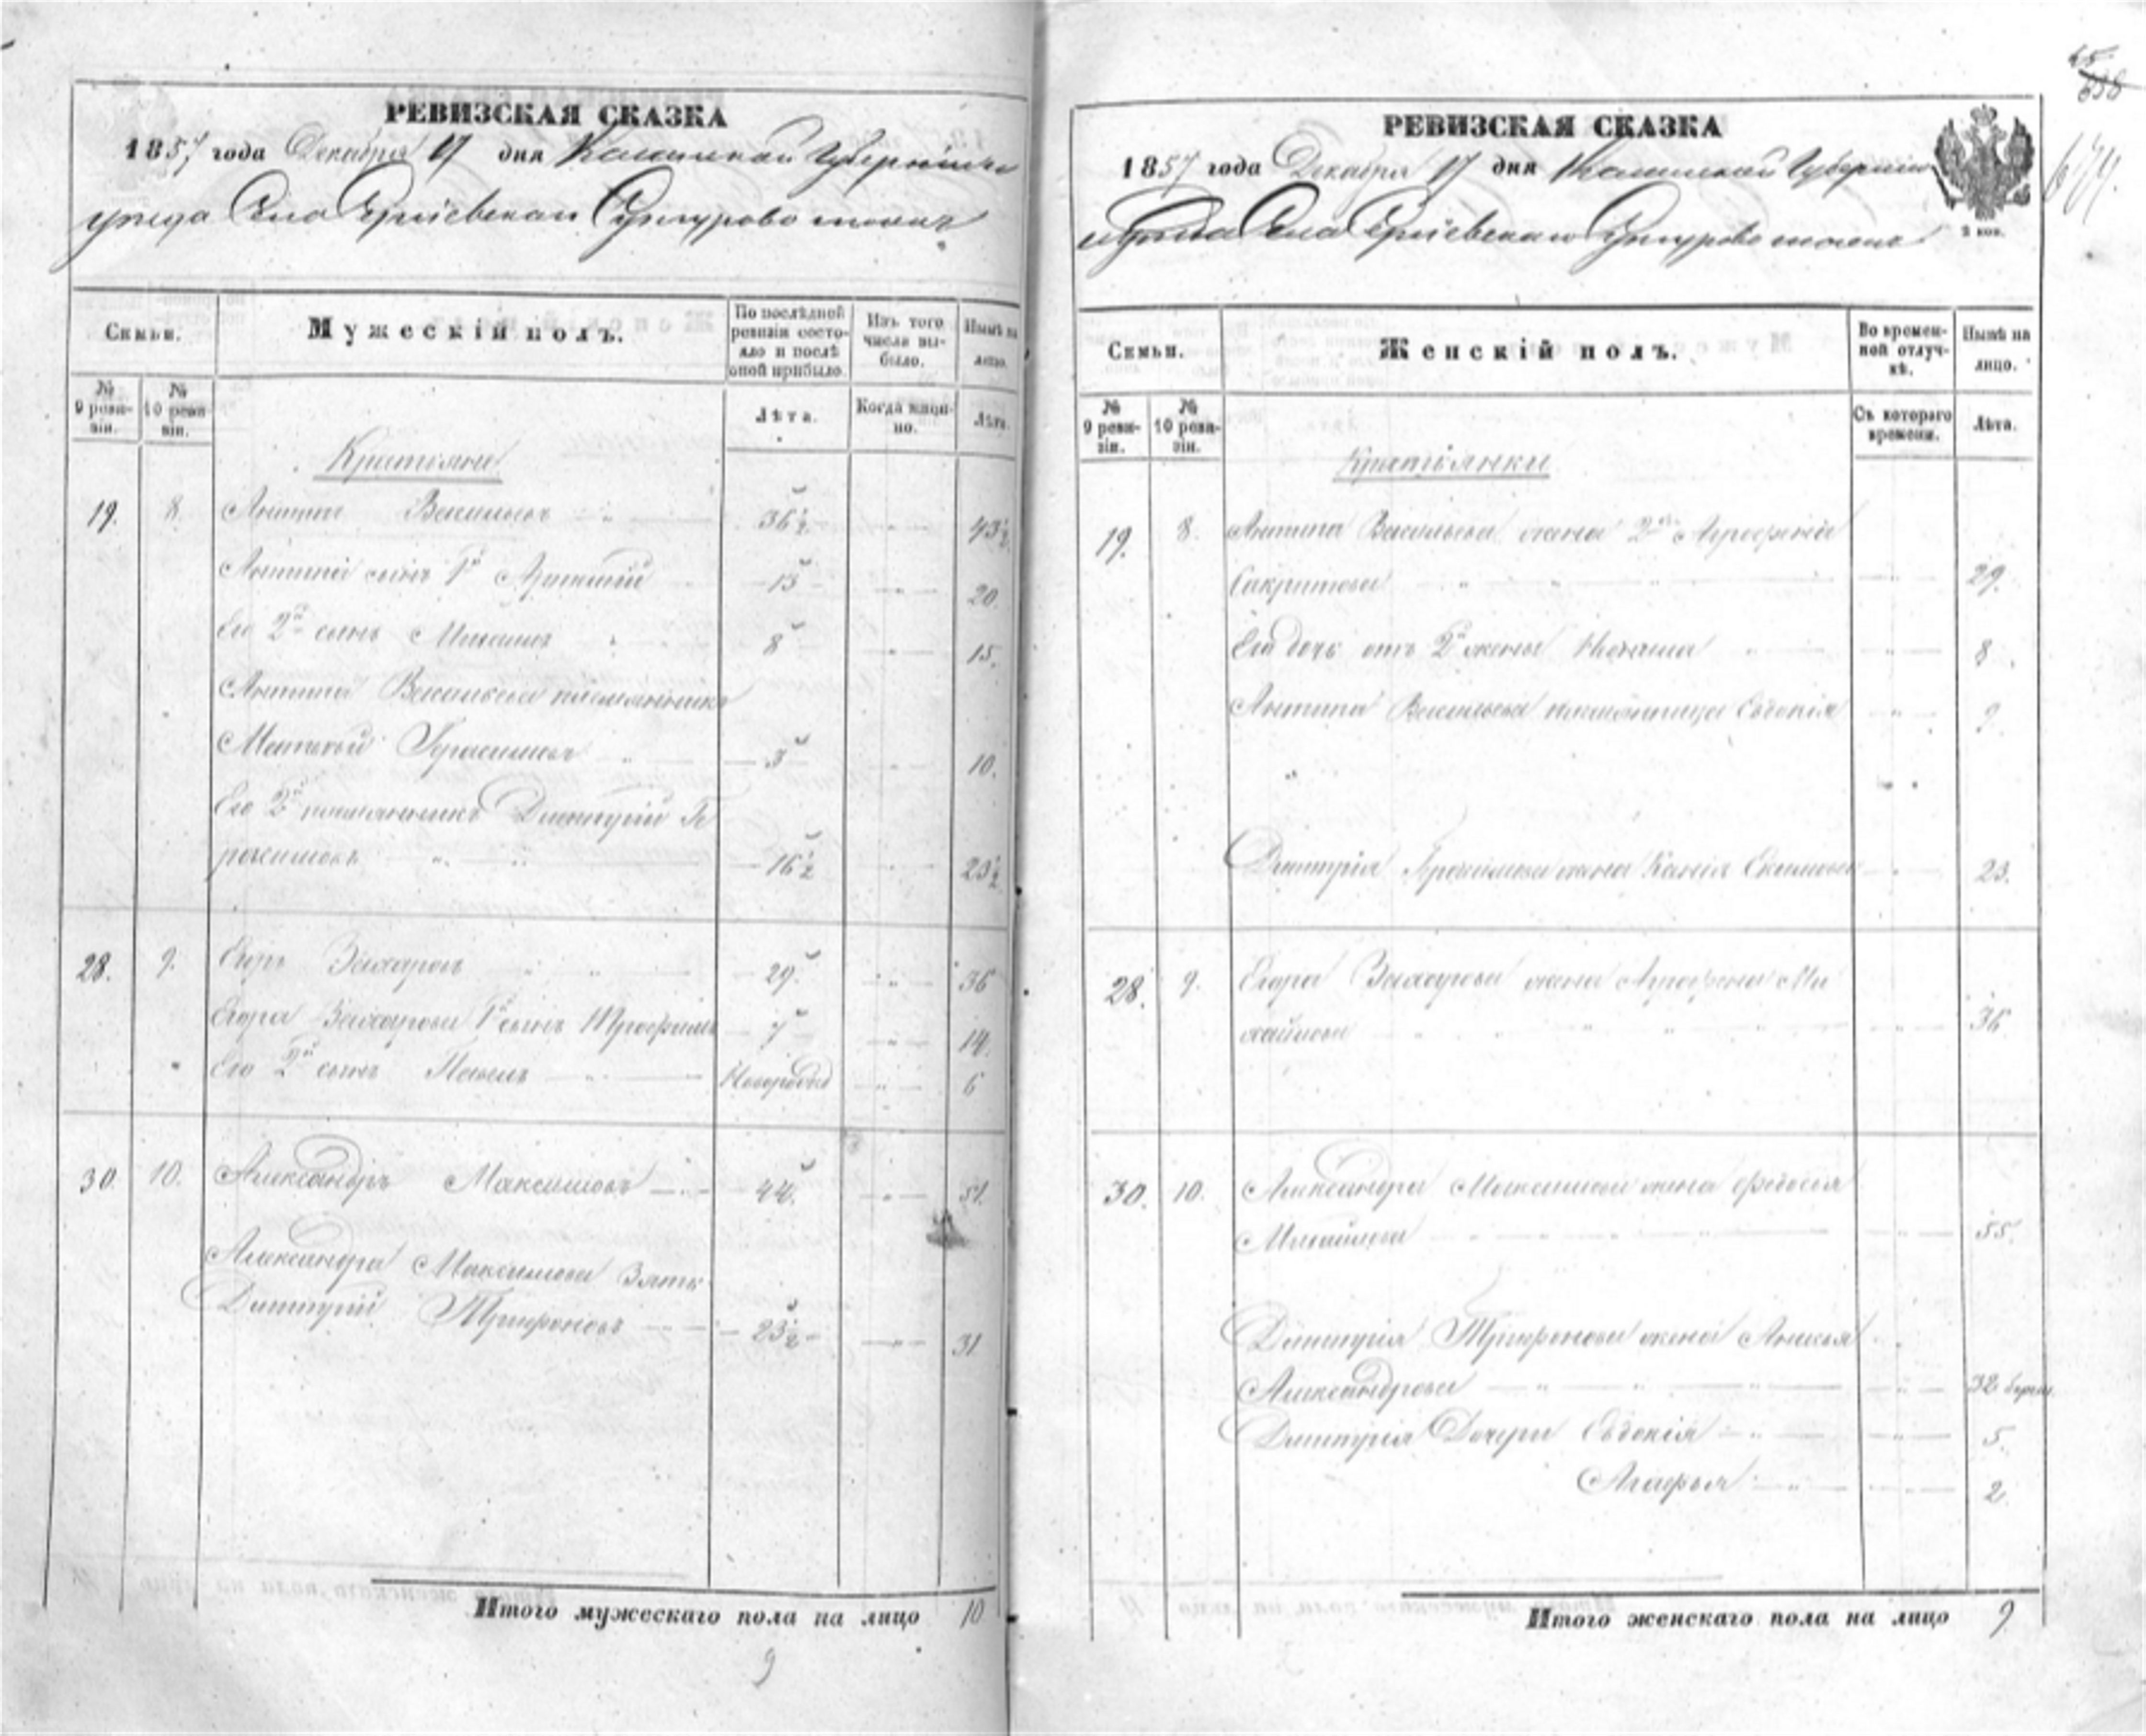 РЕВИЗСКАЯ СКАЗКА
1857 года Декабря 17 дня Губерніи
уезда Села
Семьи.
Мужескій полъ.
По послѣдней ревизіи состояло и послѣ оной прибыло.
Изъ того числа выбыло.
Нынѣ на лицо.
№ 9 ревизіи.
№ 10 ревизіи.
Лѣта.
Когда именно.
Лѣта.
Крестьяне
19. 8. Антипъ Васильевъ 36½ 43½
Антипа сынъ 1й 13 20.
Его 2й сынъ Михаилъ 8 15.
Антипа Васильева племянникъ
Матвей Герасимовъ 3 10.
Его 2й племянникъ Дмитрій Ге
расимовъ 16½ 23½
28. 9. Егоръ Захаровъ 29 36
Егора Захарова 1й сынъ Трофимъ 7 14.
Его 2й сынъ Павелъ Новорожд 6
30. 10. Александръ Максимовъ 44. 51.
Александра Максимова Зять
Дмитрій Трифоновъ 23½ 31
Итого мужескаго пола на лицо 10
9
65
658
679.
РЕВИЗСКАЯ СКАЗКА
1857 года Декабря 17 дня Губерніи
Села
3 коп.
Семьи.
Женскій полъ.
Во временной отлучкѣ.
Нынѣ на лицо.
№ 9 ревизіи.
№ 10 ревизіи.
Съ котораго времени.
Лѣта.
Крестьянки
19. 8. Антипа Васильева жена 2я
29.
Его дочь отъ 2й жены 8.
Антипа Васильева племянница Евдокія 9
Дмитрія Герасимова жена 23.
28. 9. Егора Захарова жена Ми
хайлова 36
30. 10. Александра Максимова жена Федосья
55.
Дмитрія Трифонова жена
Александрова 32
Дмитрія Дочери Евдокія 5.
Агафья 2
Итого женскаго пола на лицо 9